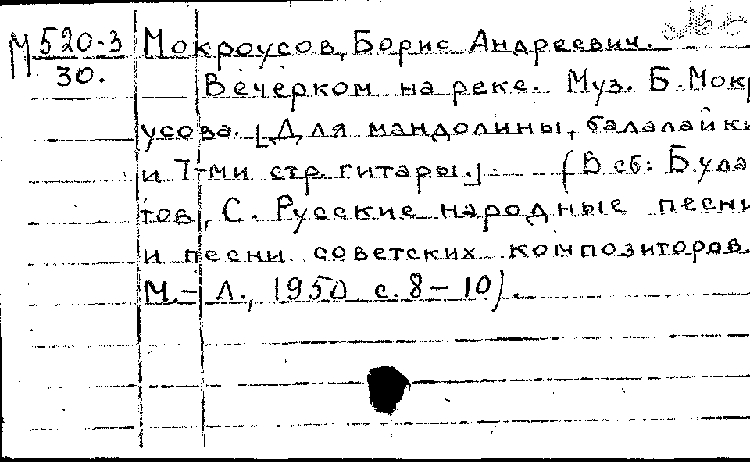 М 520-3 Мокроусов, Борис Андреевич.
30. Вечерком на реке. Муз. Б. Мокр
усова. [Для мандолины, балалайки
и 7-ми стр. гитары.] (В сб: Була
тов, С. Русские народные песни
и песни советских композиторов.
М.-Л., 1950 с. 8-10).